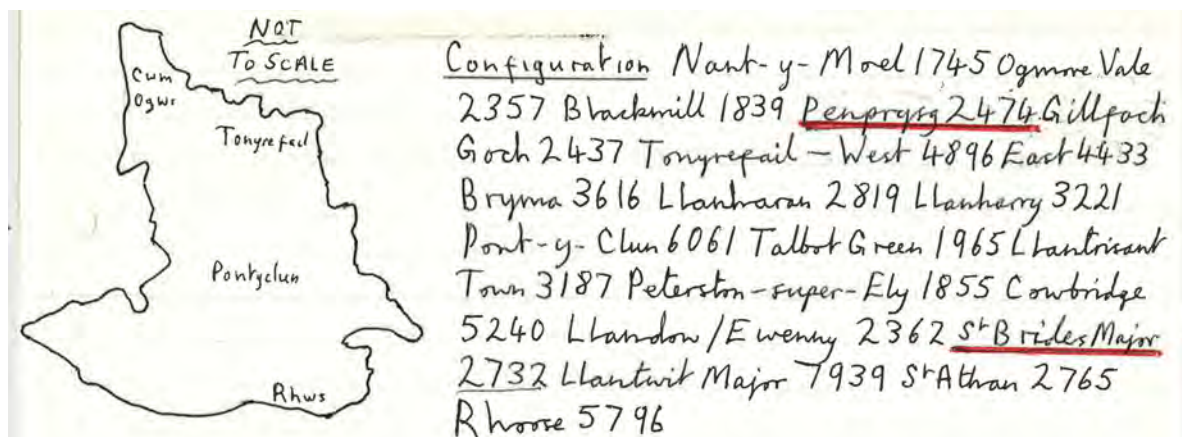 NOT
TO SCALE
Cwm
Ogwr
Tonyrefail
Pontyclun
Rhws
Configuration Nant-y-Moel 1745 Ogmore Vale
2357 Blackmill 1839 Penprysg 2474 Gillfach
Goch 2437 Tonyrefail - West 4896 East 4433
Brynna 3616 Llanharan 2819 Llanharry 3221
Pont-y-Clun 6061 Talbot Green 1965 Llantrisant
Town 3187 Peterston-super-Ely 1855 Cowbridge
5240 Llandow/Ewenny 2362 St Brides Major
2732 Llantwit Major 7939 St Athan 2765
Rhoose 5796